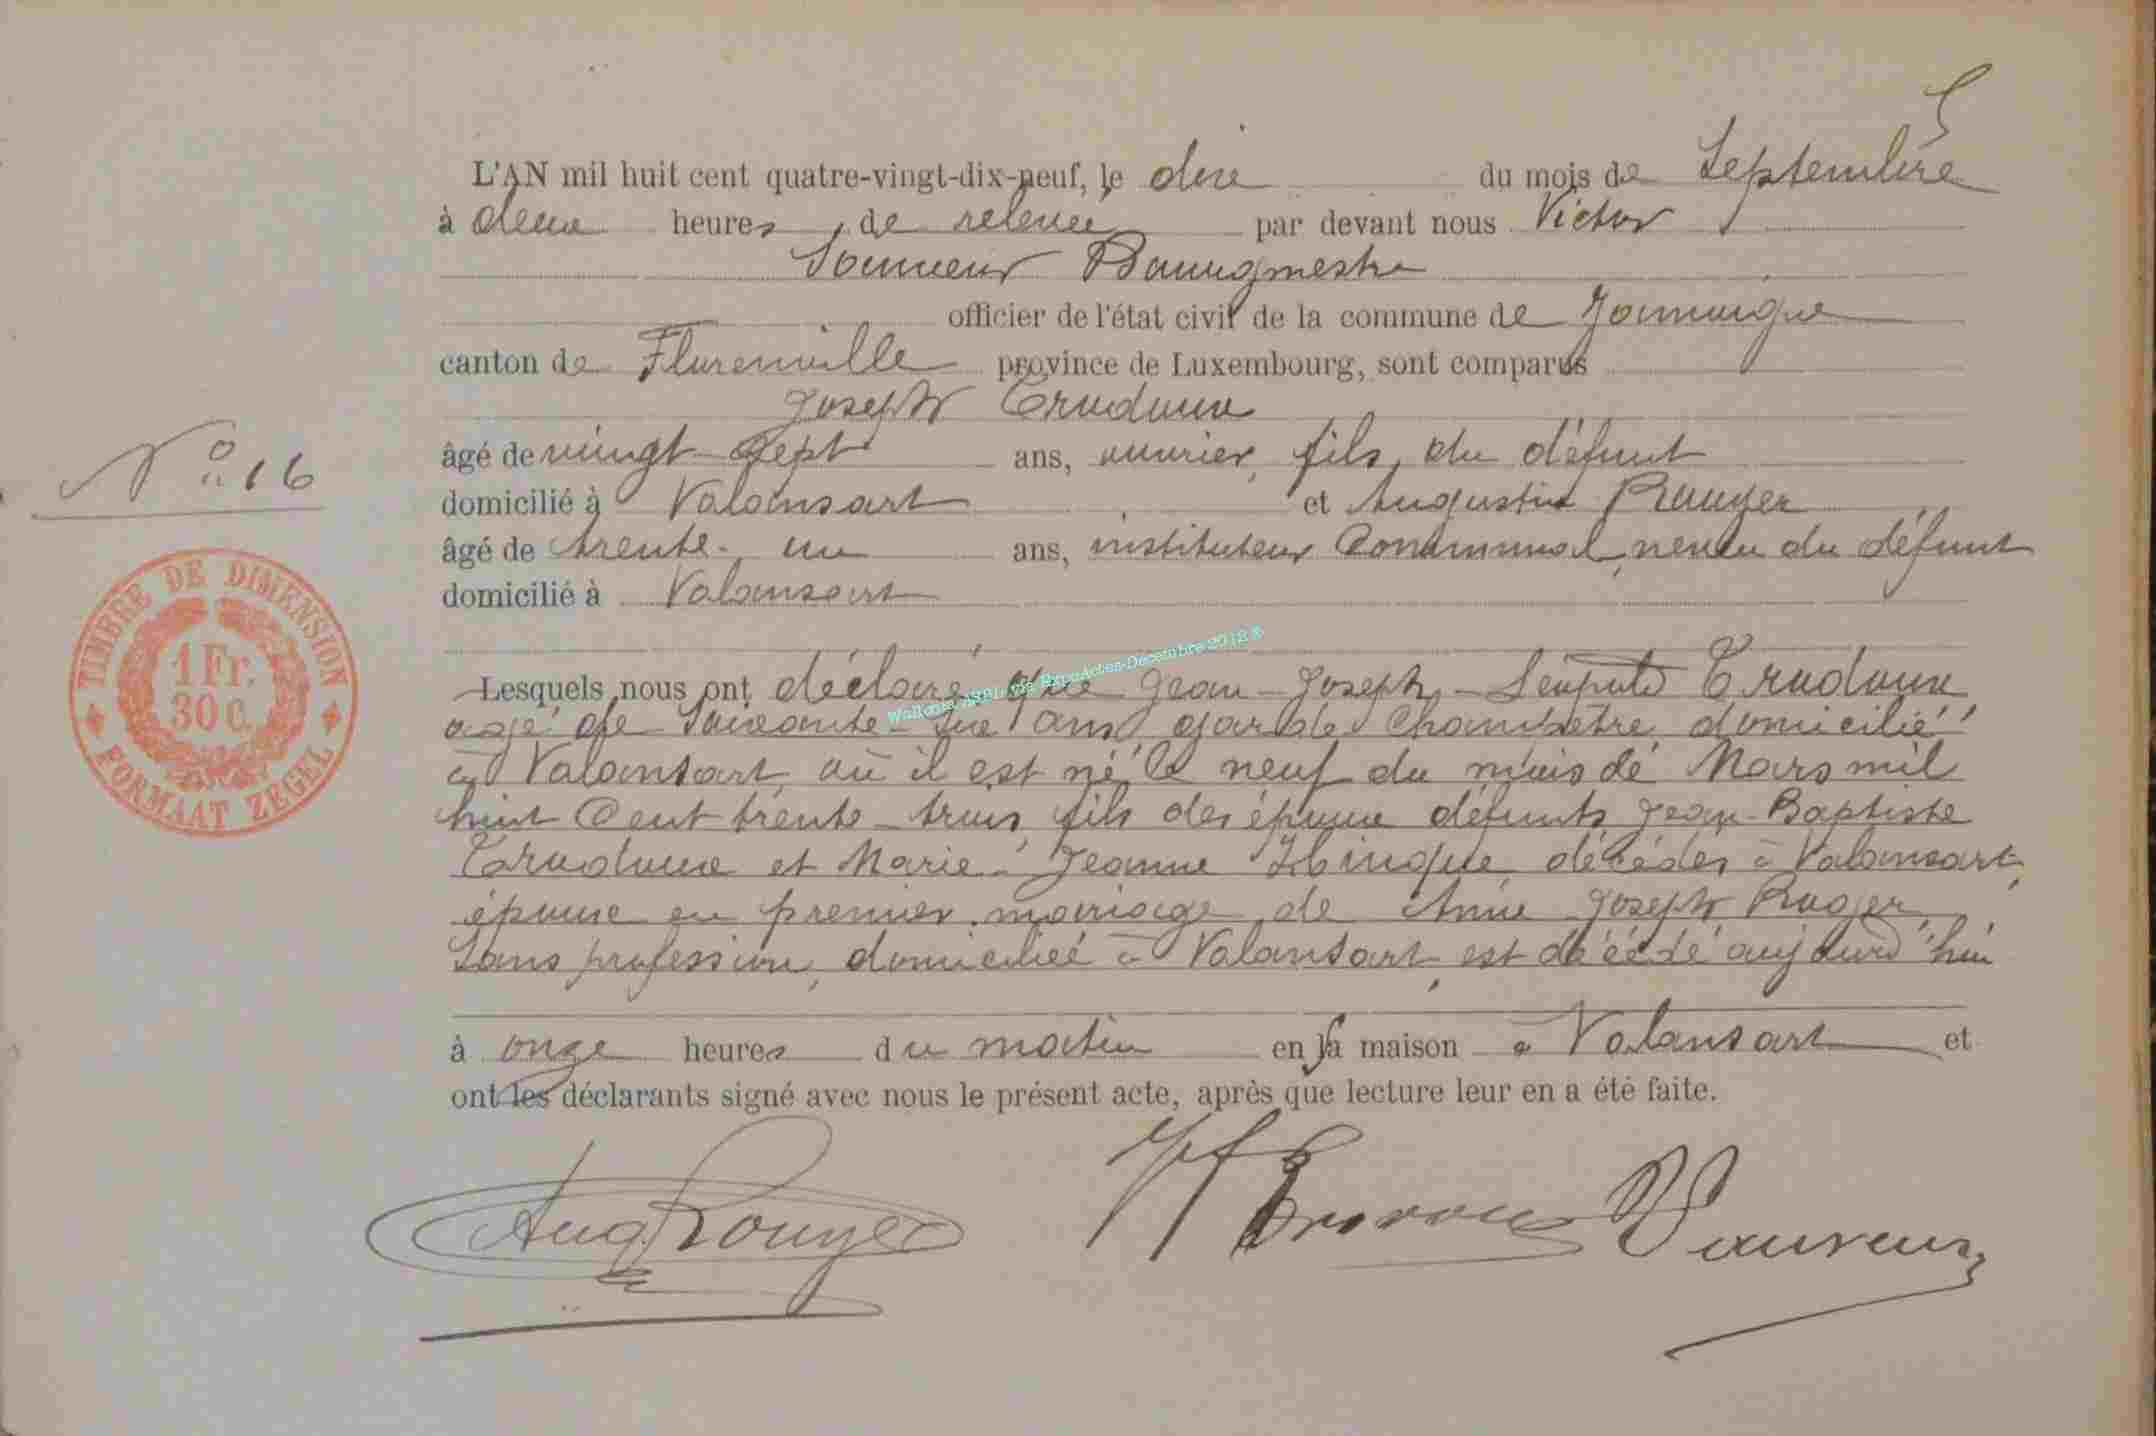 L'AN mil huit cent quatre-vingt-dix-neuf, le dix du mois de Septembre
à deux heures de relevée par devant nous Victor
Bourgmestre
officier de l'état civil de la commune de Jamoigne
canton de Florenville province de Luxembourg, sont comparus
Joseph Trodoux
âgé de vingt-sept ans, ouvrier, fils, du défunt
domicilié à Valansart et Augustin Rouyer
N° 16
âgé de trente-un ans, instituteur Communal, neveu du défunt
domicilié à Valansart
TIMBRE DE DIMENSION
1 Fr.
30 C.
FORMAAT ZEGEL
Lesquels nous ont déclaré que Jean-Joseph Trodoux
âgé de Soixante-six ans, garde Champêtre domicilié
à Valansart, où il est né le neuf du mois de Mars mil
huit Cent trente-trois, fils des époux défunts Jean-Baptiste
Trodoux et Marie-Jeanne décédés à Valansart,
époux en premier mariage de Anne Joseph
Sans profession, domiciliée à Valansart, est décédé aujourd'hui
à onze heures du matin en sa maison à Valansart et
ont les déclarants signé avec nous le présent acte, après que lecture leur en a été faite.
Aug Rouyer
Wallonia ASBL via ExpoActes-Décembre 2012 ©